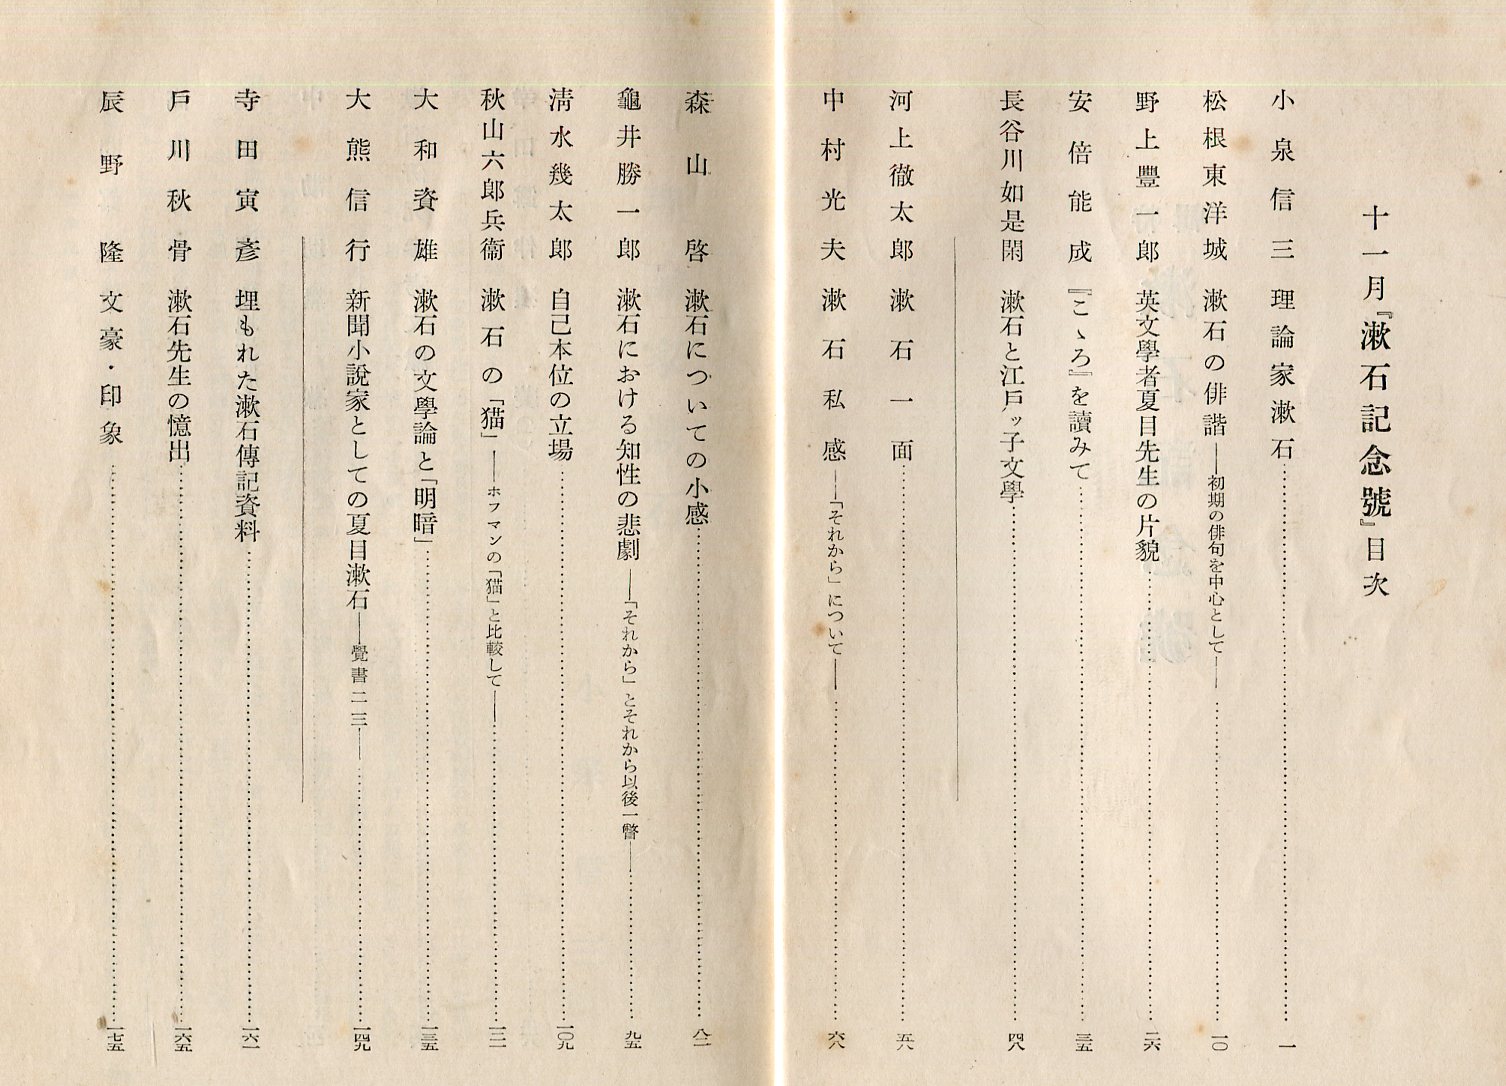 十一月『漱石記念號』目次
小泉信三 理論家漱石 一
松根東洋城 漱石の俳諧――初期の俳句を中心として―― 一〇
野上豐一郎 英文學者夏目先生の片貌 二六
安倍能成 『こゝろ』を讀みて 三五
長谷川如是閑 漱石と江戸ッ子文學 四八
河上徹太郎 漱石一面 五八
中村光夫 漱石私感――「それから」について―― 六八
森山啓 漱石についての小感 八二
龜井勝一郎 漱石における知性の悲劇――「それから」とそれから以後一瞥―― 九五
淸水幾太郎 自己本位の立場 一〇九
秋山六郎兵衞 漱石の「猫」――ホフマンの「猫」と比較して――
大和資雄 漱石の文學論と「明暗」 一三五
大熊信行 新聞小說家としての夏目漱石――覺書二三―― 一四九
寺田寅彥 埋もれた漱石傳記資料 一六一
戸川秋骨 漱石先生の憶出 一六五
辰野隆 文豪・印象 一七五